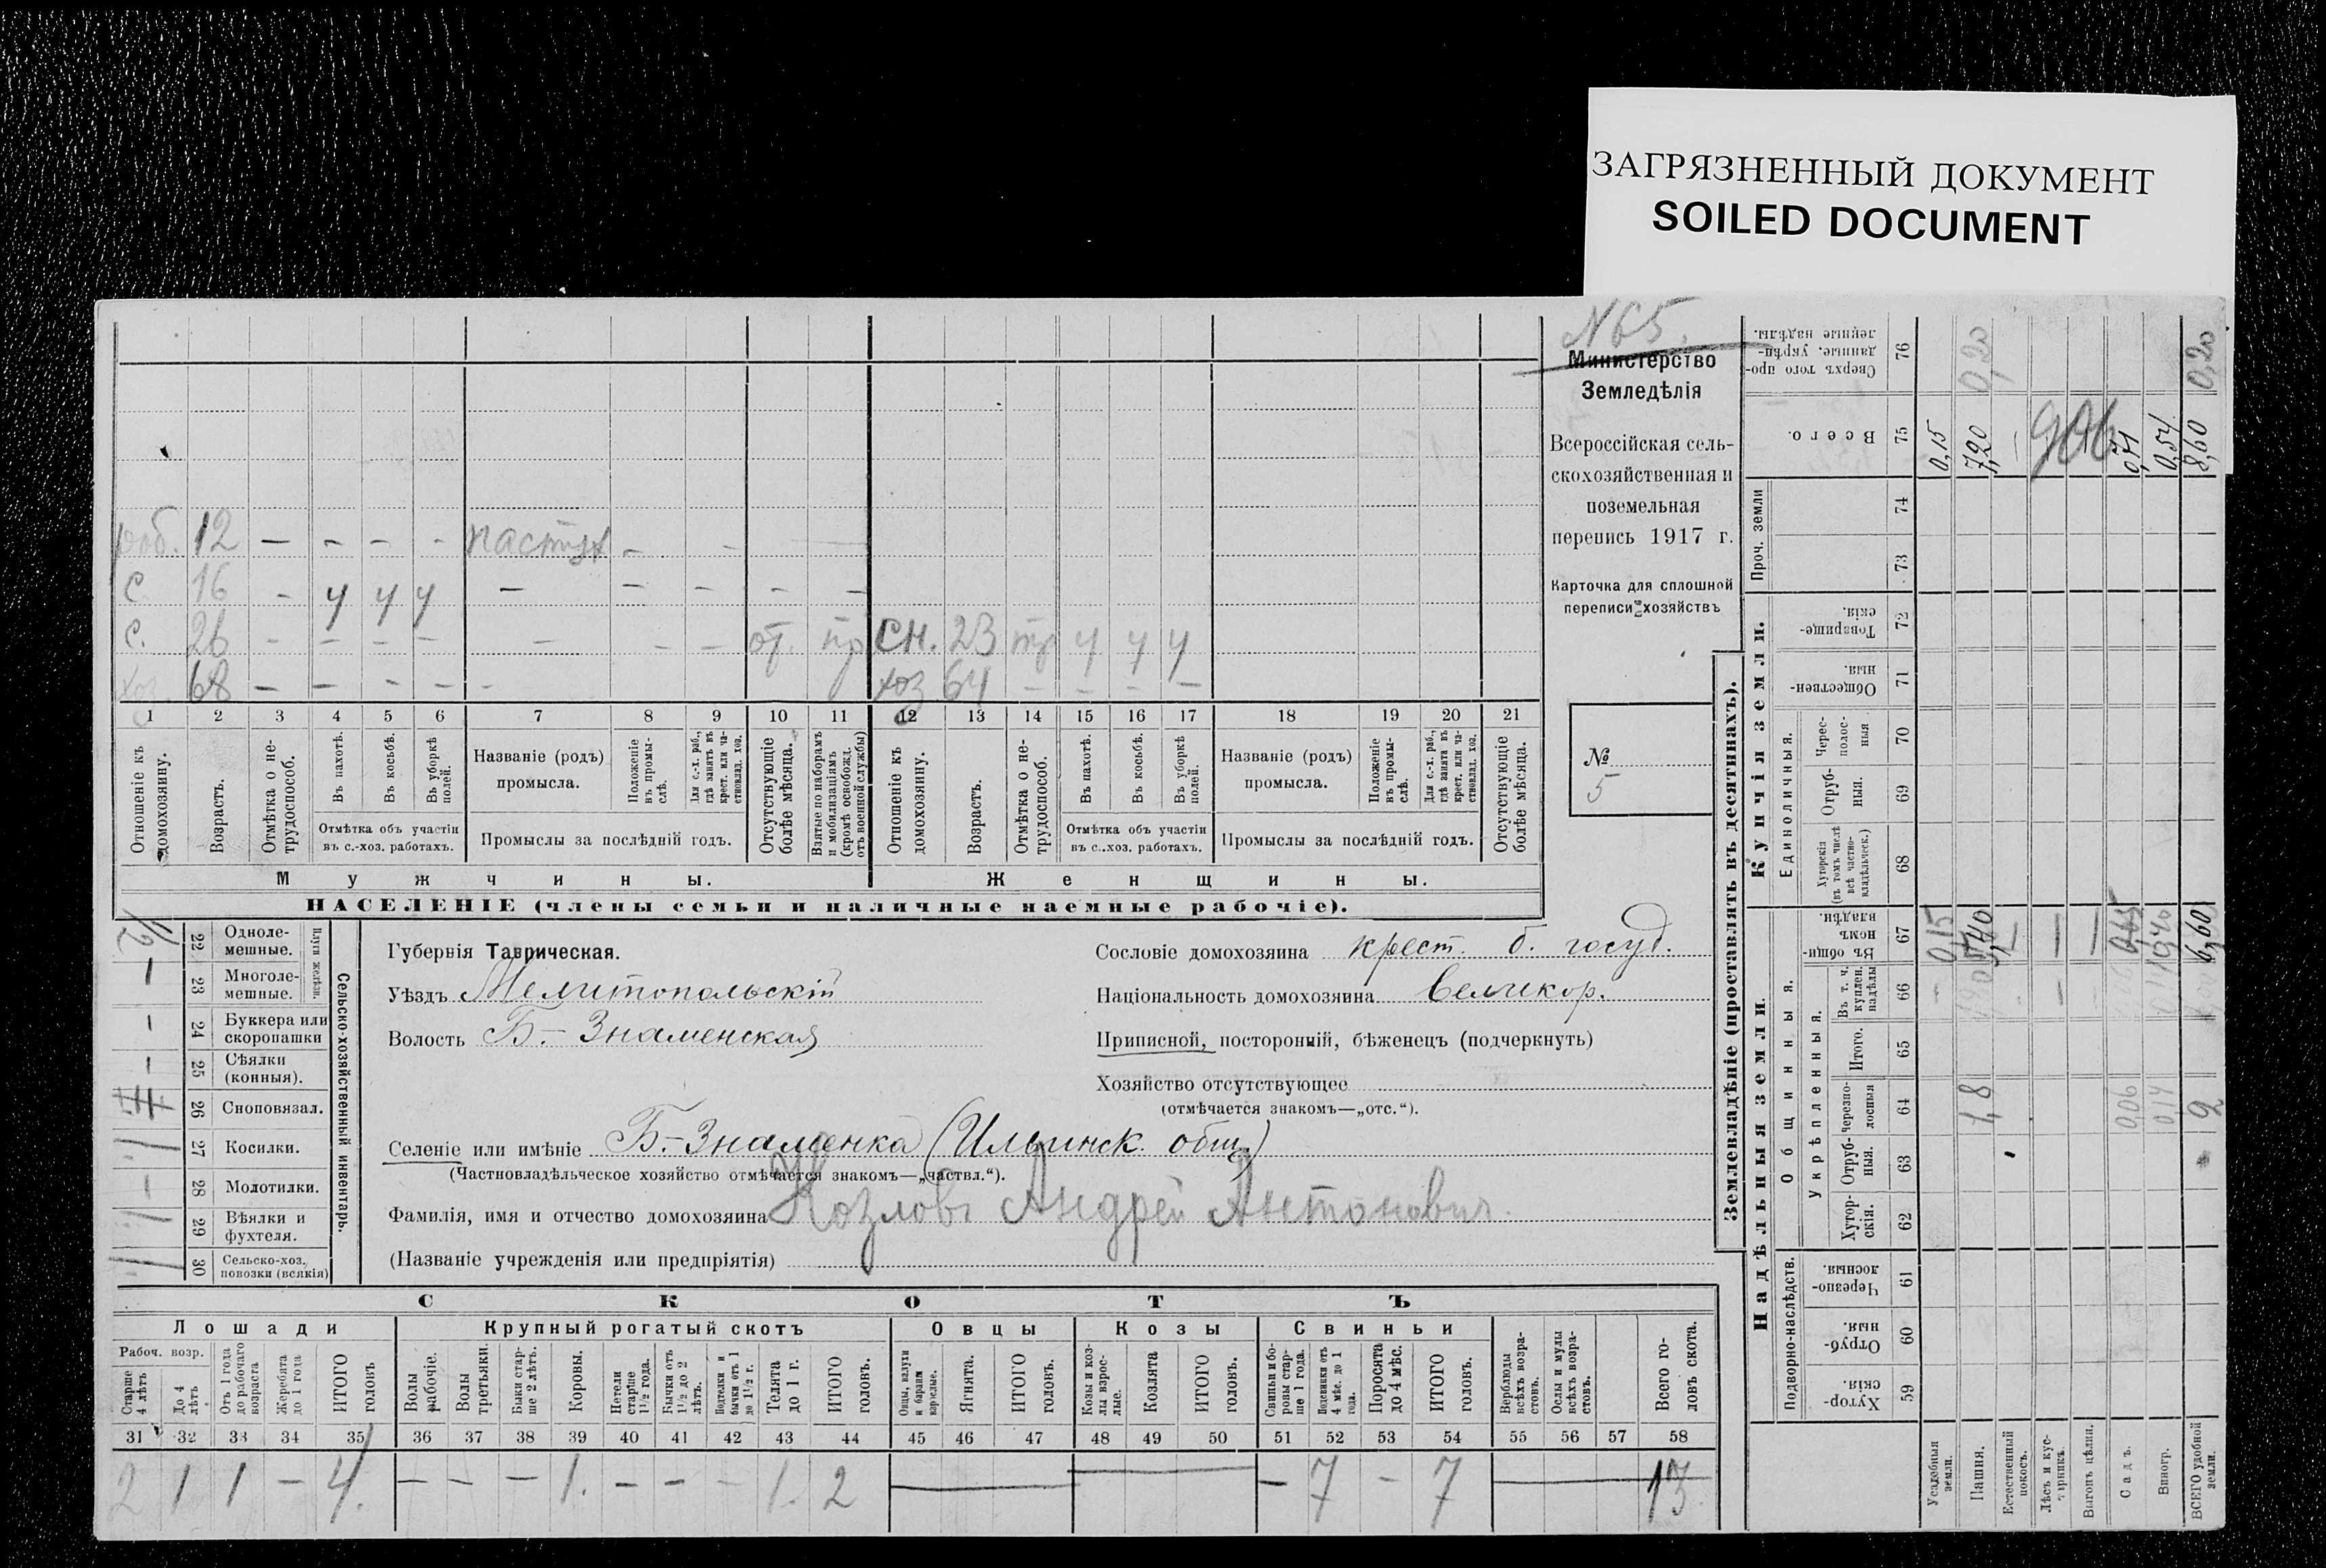 ЗАГРЯЗНЕННЫЙ ДОКУМЕНТ
SOILED DOCUMENT
N65.
Министерство
Земледѣлія
Всероссійская сель-
скохозяйственная и
поземельная
перепись 1917 г.
Карточка для сплошной
переписи хозяйствъ
№
5
раб. 12 — - - - пастух - -
с. 16 - у у у — — - - -
с. 26 - - - - - - - от. пр сн. 23 тр у у у
хоз. 68 — - - - - хоз 64 — - - -
1 2 3 4 5 6 7 8 9 10 11 12 13 14 15 16 17 18 19 20 21
Отношеніе къ домохозяину.
Возрастъ.
Отмѣтка о не-трудоспособ.
Въ пахотѣ.
Въ косьбѣ.
Въ уборкѣ полей.
Отмѣтка объ участіи въ с.-хоз. работахъ.
Названіе (родъ) промысла.
Положеніе въ промы-слѣ.
Для с.-х. раб., гдѣ занятъ въ крест. или ча-стновлад. хоз.
Промыслы за послѣдній годъ.
Отсутствующіе болѣе мѣсяца.
Взятые по наборамъ и мобилизаціямъ (кромѣ освобожд. отъ военной службы)
Отношеніе къ домохозяину.
Возрастъ.
Отмѣтка о не-трудоспособ.
Въ пахотѣ.
Въ косьбѣ.
Въ уборкѣ полей.
Отмѣтка объ участіи въ с.-хоз. работахъ.
Названіе (родъ) промысла.
Положеніе въ промы-слѣ.
Для с.-х. раб., гдѣ занята въ крест. или ча-стновлад. хоз.
Промыслы за послѣдній годъ.
Отсутствующіе болѣе мѣсяца.
Мужчины. Женщины.
НАСЕЛЕНІЕ (члены семьи и наличные наемные рабочіе).
Сельско-хозяйственный инвентарь.
Плуги желѣзн.
22 Одноле-мешные.
23 Многоле-мешные.
24 Буккера или скоропашки
25 Сѣялки (конныя).
26 Сноповязал.
27 Косилки.
28 Молотилки.
29 Вѣялки и фухтеля.
30 Сельско-хоз. повозки (всякія)
Губернія Таврическая.
Уѣздъ Мелитопольскій
Волость Б.-Знаменская
Сословіе домохозяина крест. б. госуд.
Національность домохозяина Великор.
Приписной, посторонній, бѣженецъ (подчеркнуть)
Хозяйство отсутствующее
(отмѣчается знакомъ—„отс.“).
Селеніе или имѣніе Б.-Знаменка (Ильинск. общ.)
(Частновладѣльческое хозяйство отмѣчается знакомъ—„частвл.“).
Фамилія, имя и отчество домохозяина Козловъ Андрей Антонович.
(Названіе учрежденія или предпріятія)
СКОТЪ
Лошади Крупный рогатый скотъ Овцы Козы Свиньи
Рабоч. возр.
Старше 4 лѣтъ
До 4 лѣтъ
Отъ 1 года до рабочаго возраста
Жеребята до 1 года
ИТОГО головъ
Волы рабочіе.
Волы третьяки.
Быки стар-ше 2 лѣтъ.
Коровы.
Нетели старше 1½ года.
Бычки отъ 1½ до 2 лѣтъ.
Подтелки и бычки отъ 1 до 1½ г.
Телята до 1 г.
ИТОГО головъ.
Овцы, валухи и бараны взрослые.
Ягнята.
ИТОГО головъ.
Козы и коз-лы взрос-лые.
Козлята
ИТОГО головъ.
Свиньи и бо-ровы стар-ше 1 года.
Подсвинки отъ 4 мѣс. до 1 года.
Поросята до 4 мѣс.
ИТОГО головъ.
Верблюды всѣхъ возра-стовъ.
Ослы и мулы всѣхъ возра-стовъ.
Всего го-ловъ скота.
31 32 33 34 35 36 37 38 39 40 41 42 43 44 45 46 47 48 49 50 51 52 53 54 55 56 57 58
2 1 1 — 4. — — — 1. — — - 1. 2 — 7 - 7 13.
Землевладѣніе (проставлять въ десятинахъ).
Купчія земли.
Надѣльныя земли.
Проч. земли
Единоличныя.
Общинныя.
Укрѣпленныя.
Подворно-наслѣдств.
Сверхъ того про-данные, укрѣп-ленные надѣлы. 76
Всего. 75
74
73
Товарище-скія. 72
Обществен-ныя. 71
Черес-полос-ныя 70
Отруб-ныя. 69
Хуторскія (въ томъ числѣ всѣ частно-владѣльческ.) 68
Въ общин-номъ владѣн. 67
Въ т. ч. куплен. надѣлы 66
Итого. 65
Черезпо-лосныя 64
Отруб-ныя. 63
Хутор-скія. 62
Черезпо-лосныя. 61
Отруб-ныя. 60
Хутор-скія. 59
Усадебныя земли.
Пашня.
Естественный покосъ.
Лѣсъ и кус-тарникъ.
Выгонъ цѣлин.
Садъ.
Виногр.
ВСЕГО удобной земли.
0,20 0,20
0,15 7,20 906 0,71 0,54 8,60
0,15 6,60
1,8 0,06 0,14 2